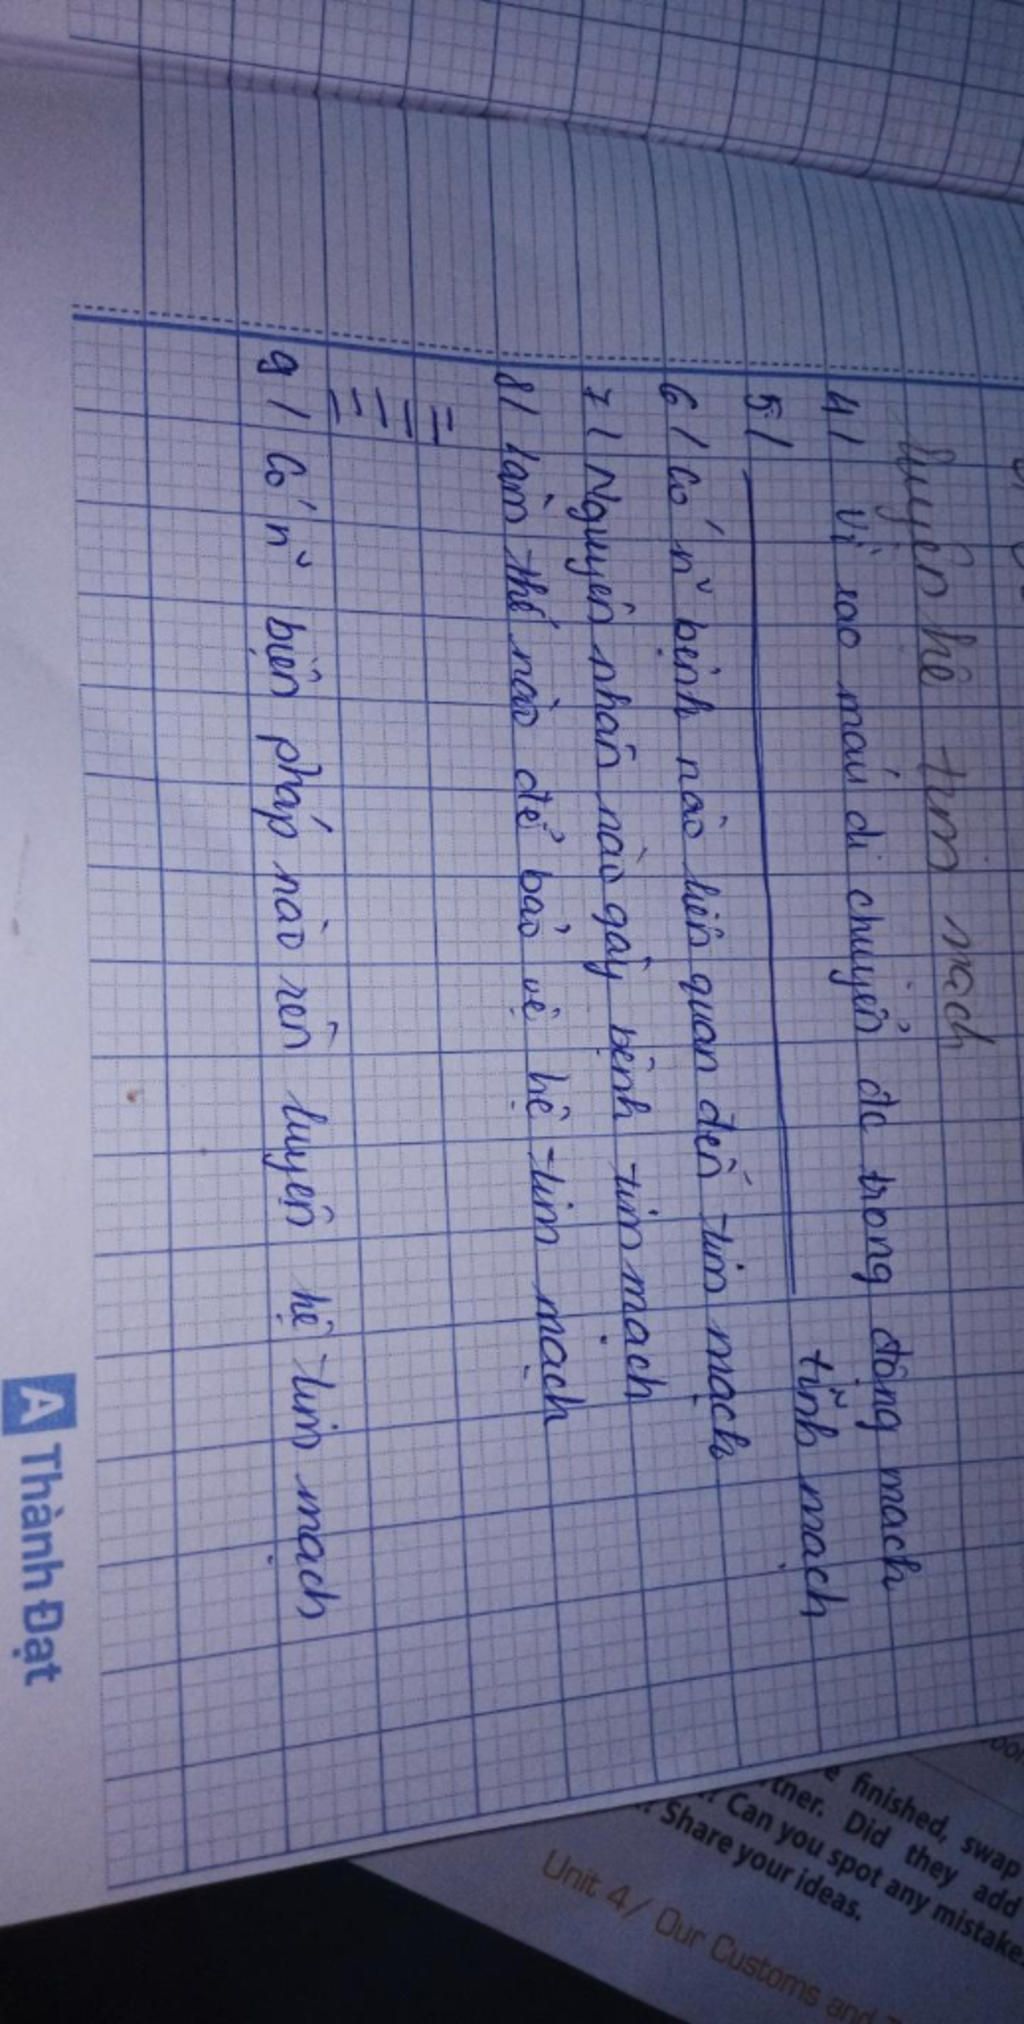 luyện hệ tim mạch
4/ Vì sao máu di chuyển đc trong động mạch
5/ tĩnh mạch
6/ Có n~ bệnh nào liên quan đến tim mạch
7/ Nguyên nhân nào gây bệnh tim mạch
8/ Làm thế nào để bảo vệ hệ tim mạch
9/ Có n~ biện pháp nào rèn luyện hệ tim mạch
A Thành Đạt
e finished, swap
rtner. Did they add
Can you spot any mistake
Share your ideas.
Unit 4/ Our Customs and